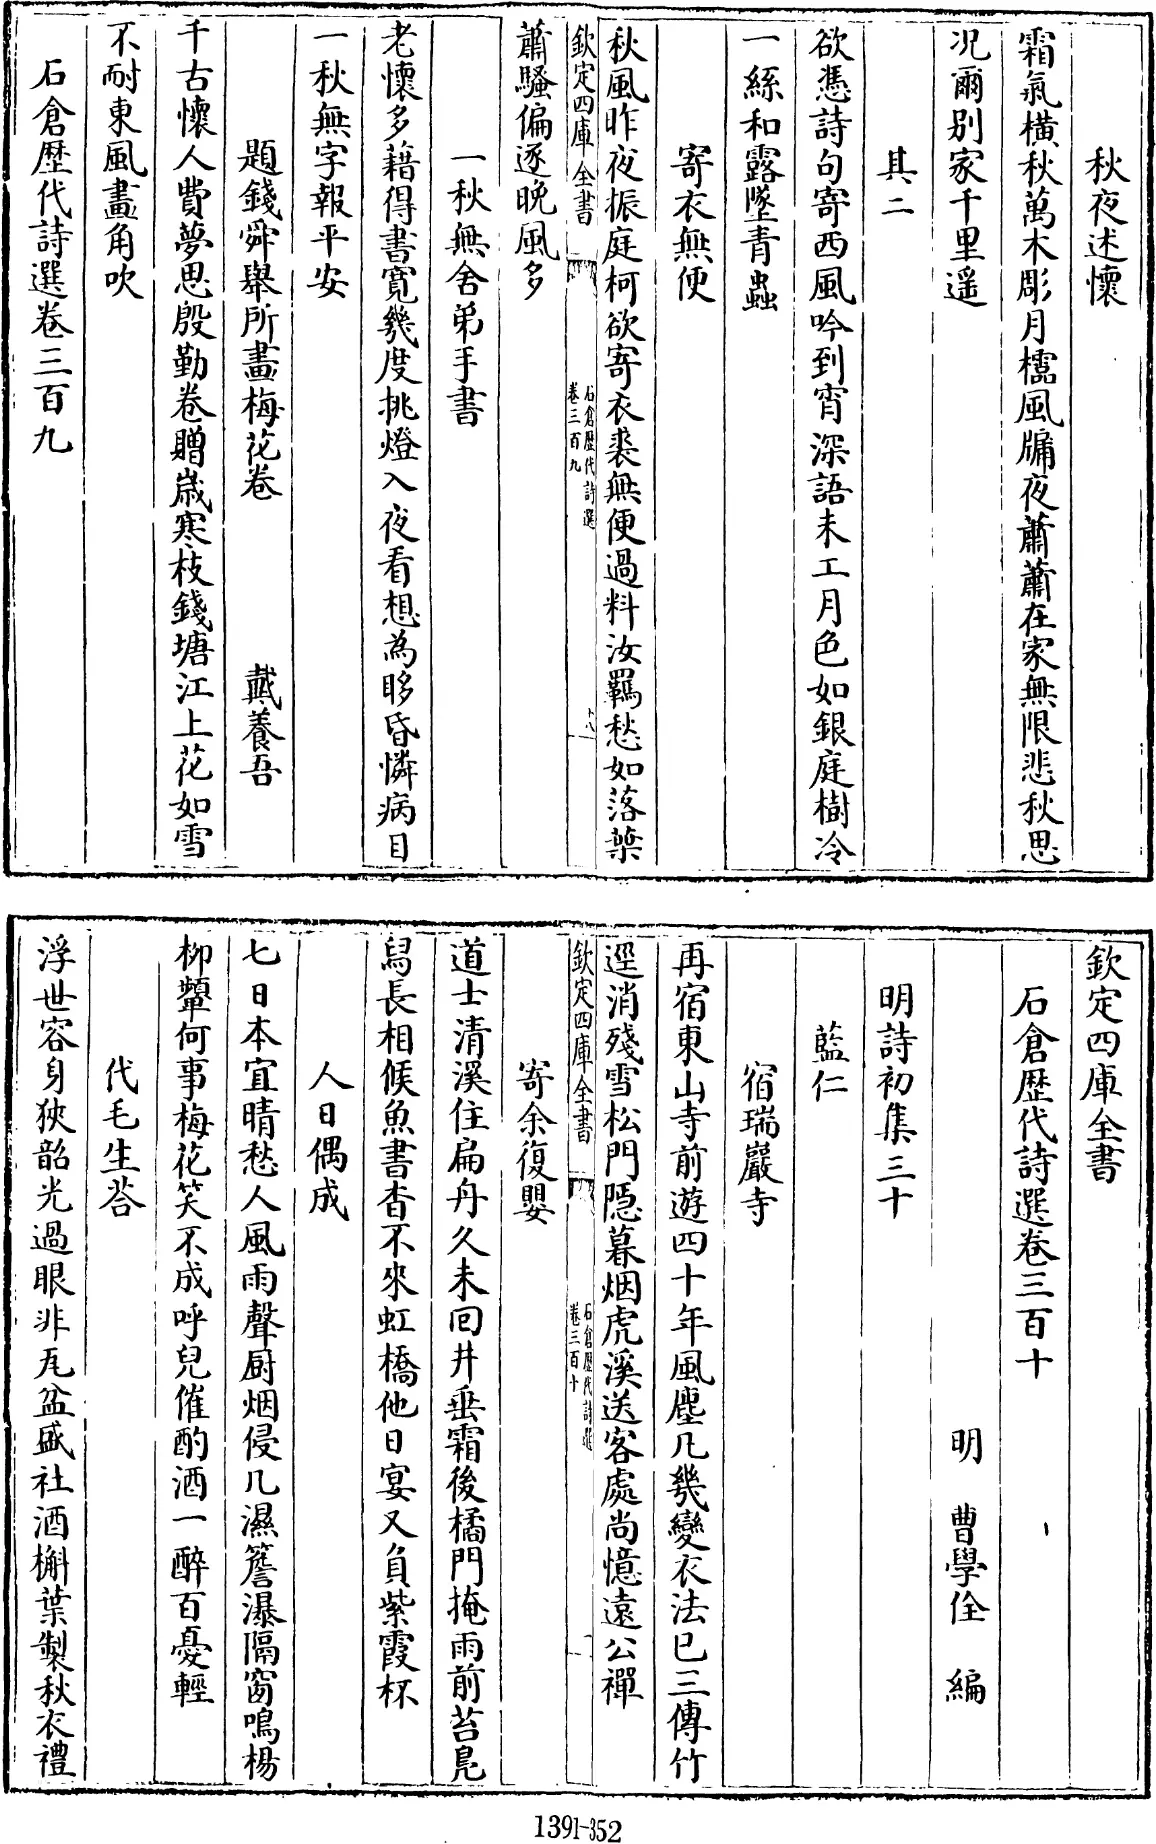 秋夜述懷
霜氣橫秋萬木彫月櫺風牖夜蕭蕭在家無限悲秋思
况爾别家千里遥
其二
欲憑詩句寄西風吟到宵深語未工月色如銀庭樹冷
一絲和露墜青蟲
寄衣無便
秋風昨夜振庭柯欲寄衣裘無便過料汝羈愁如落葉
欽定四庫全書
石倉歷代詩選
卷三百九
十八
蕭騷偏逐晚風多
一秋無舍弟手書
老懷多藉得書寛幾度挑燈入夜看想為眵昏憐病目
一秋無字報平安
題錢舜舉所畫梅花卷 戴養吾
千古懷人費夢思殷勤卷贈嵗寒枝錢塘江上花如雪
不耐東風畫角吹
石倉歷代詩選卷三百九
欽定四庫全書
石倉歷代詩選卷三百十
明 曹學佺 編
明詩初集三十
藍仁
宿瑞巖寺
再宿東山寺前遊四十年風塵凡幾變衣法已三傳竹
逕消殘雪松門隠暮烟虎溪送客處尚憶遠公禪
欽定四庫全書
石倉歷代詩選
卷三百十
一
寄余復嬰
道士清溪住扁舟久未回井垂霜後橘門掩雨前苔鳬
舄長相候魚書杳不來虹橋他日宴又負紫霞杯
人日偶成
七日本宜晴愁人風雨聲厨烟侵几濕簷瀑隔窗鳴楊
柳顰何事梅花笑不成呼兒催酌酒一醉百憂輕
代毛生荅
浮世容身狹韶光過眼非瓦盆盛社酒槲葉製秋衣禮
1391-352